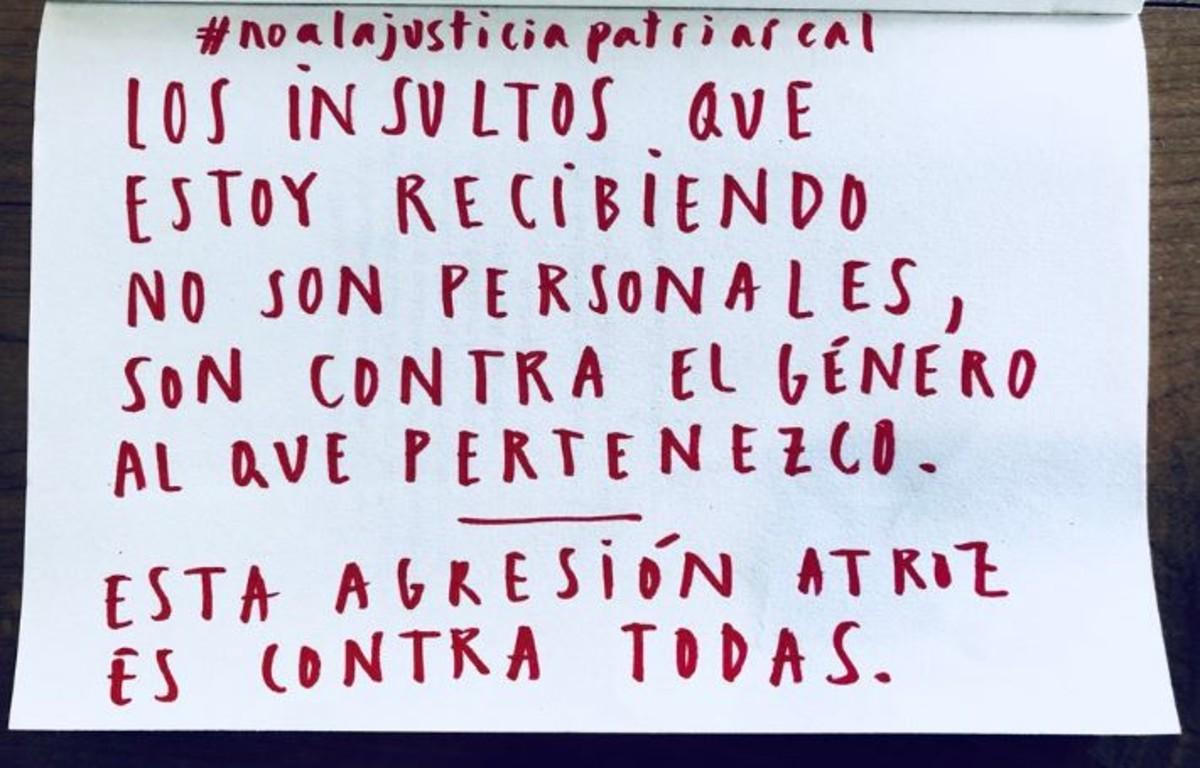 #noalajusticiapatriarcal
LOS INSULTOS QUE
ESTOY RECIBIENDO
NO SON PERSONALES,
SON CONTRA EL GÉNERO
AL QUE PERTENEZCO.
ESTA AGRESIÓN ATROZ
ES CONTRA TODAS.